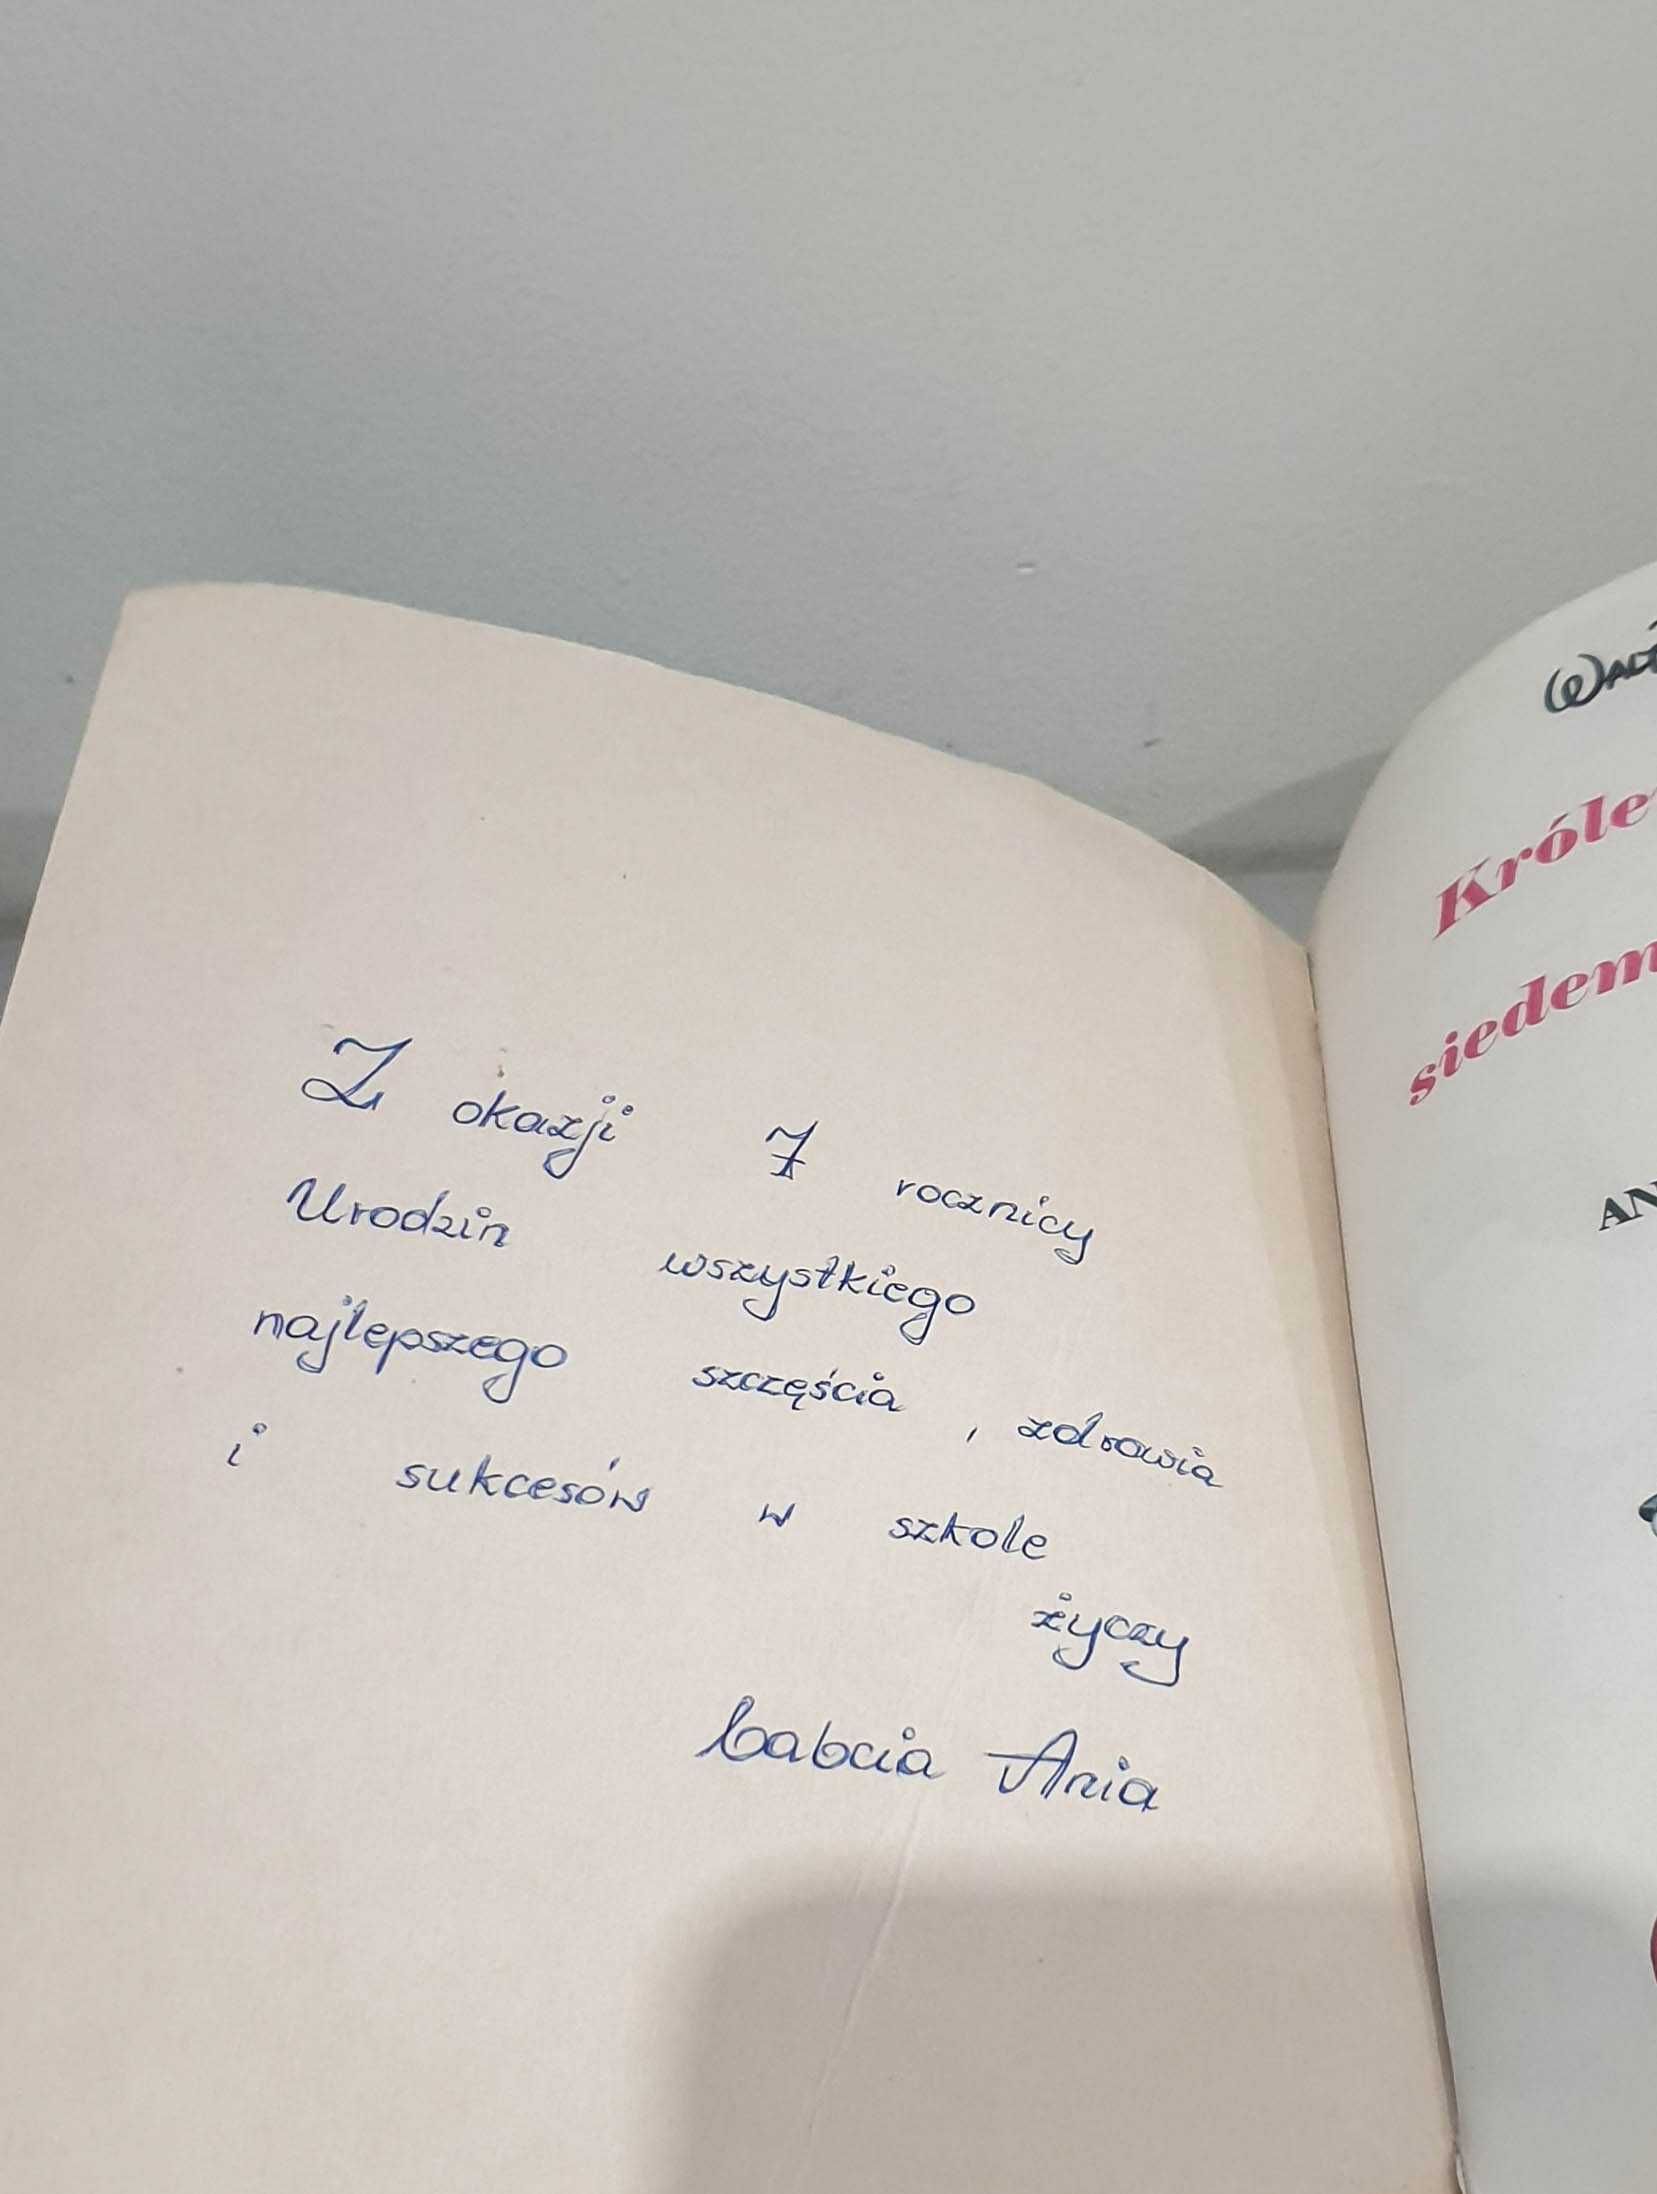 Z okazji 7 rocznicy
Urodzin wszystkiego
najlepszego szczęścia, zdrowia
i sukcesów w szkole
życzy
babcia Ania
Walt
Króle
siedem
AN